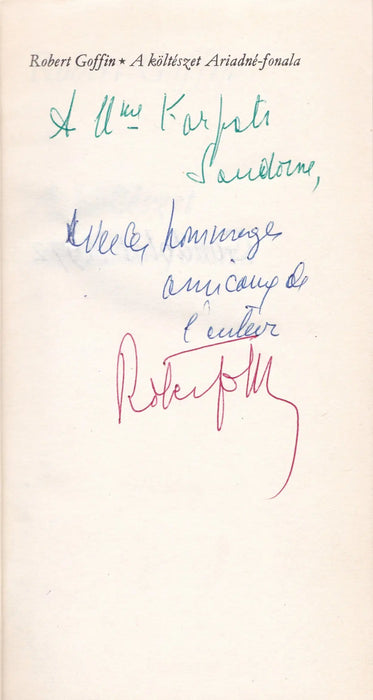 Robert Goffin ★ A költészet Ariadné-fonala
A Mme Karpati
Sandorne,
Avec les hommages
amicaux de
l'auteur
Robert Goffin